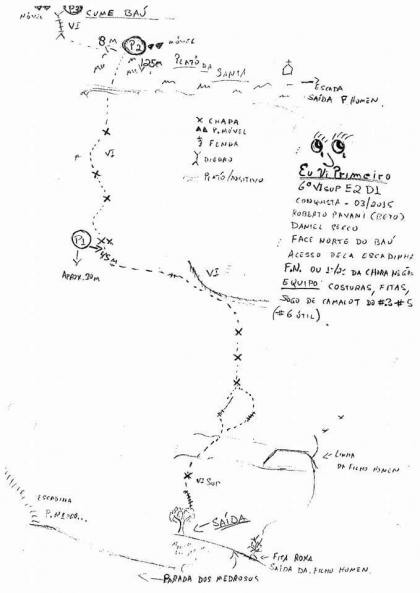 P3 CUME BAÚ
MÓVEL
VI
8m
P2
MÓVEL
25m
PLATÔ DA SANTA
ESCADA
SAÍDA P. HOMEN.
X CHAPA
P. MÓVEL
FENDA
DIEDRO
PLATÔ/POSITIVO
VI
Eu Vi Primeiro
6º VISUP E2 D1
CONQUISTA - 03/2015
ROBERTO PAVANI (BETO)
DANIEL
FACE NORTE DO BAÚ
ACESSO PELA ESCADINHA
F.N. OU DA
EQUIPO: COSTURAS, FITAS,
JOGO DE CAMALOT DO #.3 #5
(#6 ÚTIL)
P1
45m
APROX. 20m
VI
LINHA
DA FILHO HOMEM
VI SUP
SAÍDA
ESCADINA
FITA ROXA
SAÍDA DA FILHO HOMEN.
PARADA DOS MEDROSOS